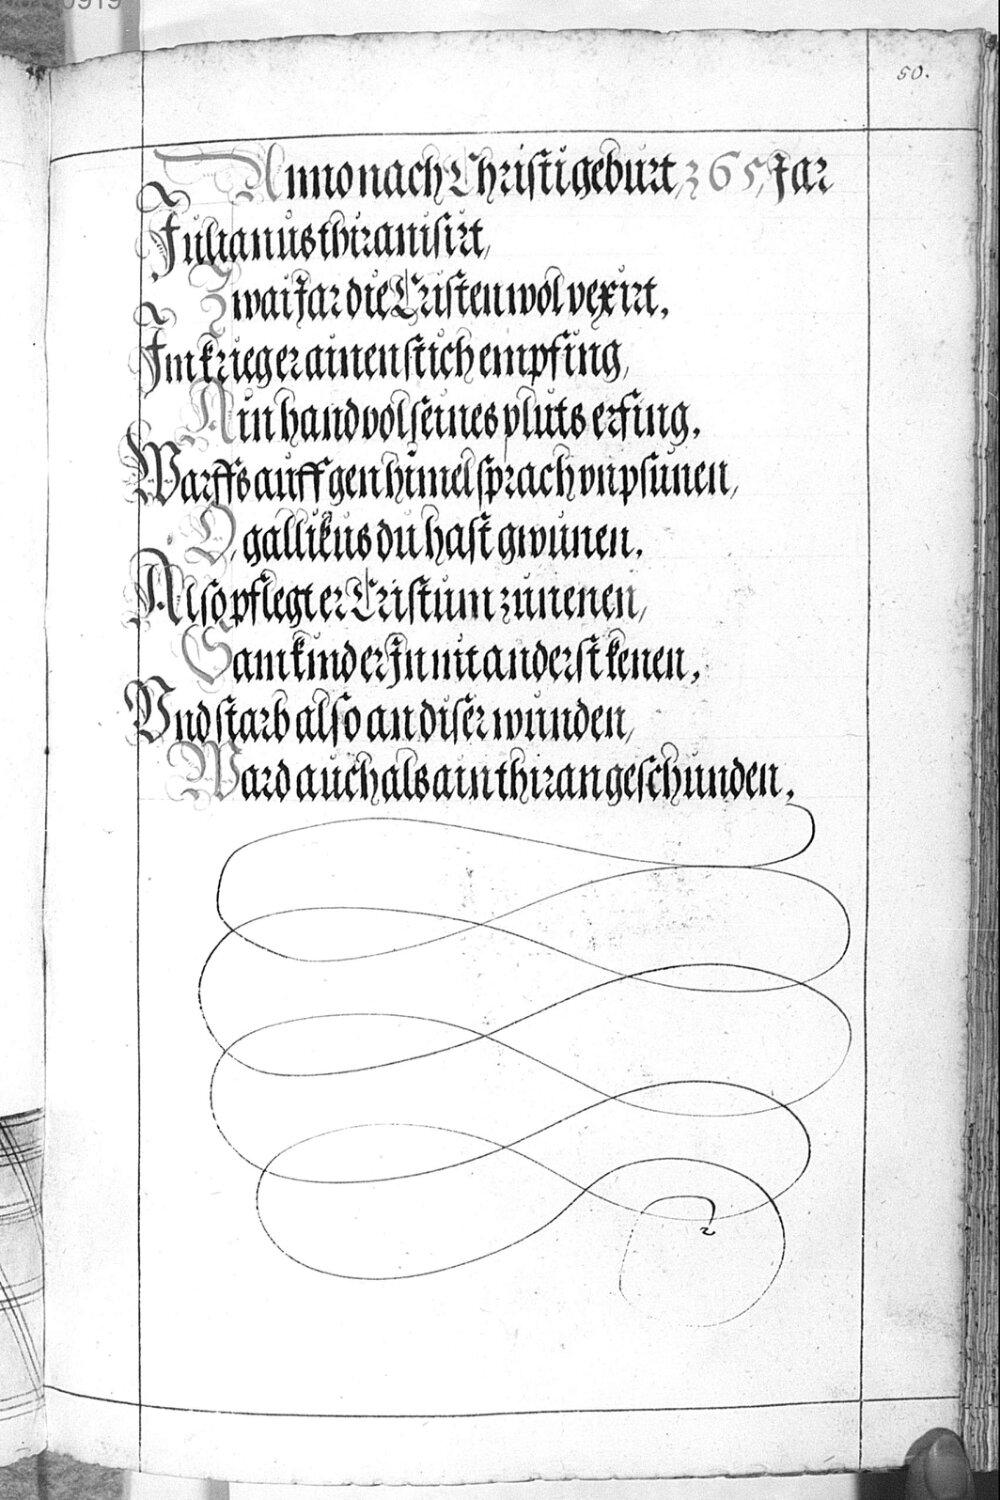 50.
Anno nach Christi geburt, 365, Jar
Julianus thiranisirt,
Zwai Jar die Cristen wol vexirt,
Im krieg er ainen stich empfing,
Ain hand vol seines pluts erfing,
Warffs auff gen himel sprach unpsunen,
O gallikus du hast gwunen,
Also pflegt er Cristum zu nenen,
Sam kind er In nit anderst kenen,
Und starb also an diser wunden,
Ward auch als ain thiran geschunden,